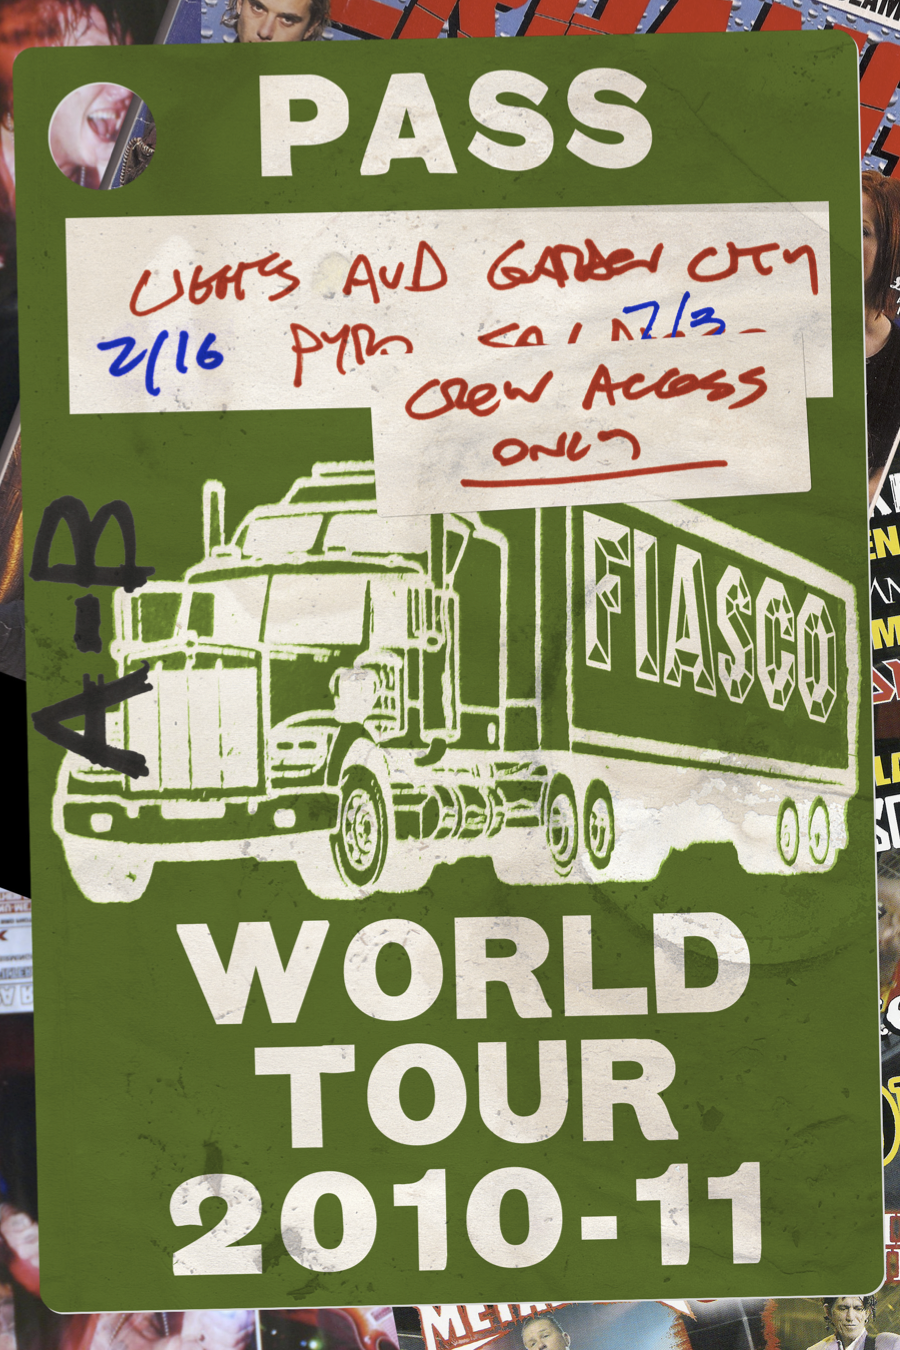 PASS
LIGHTS AND GARDEN CITY
2/16 PYRO 7/3
CREW ACCESS
ONLY
A-B
FIASCO
WORLD
TOUR
2010-11
META